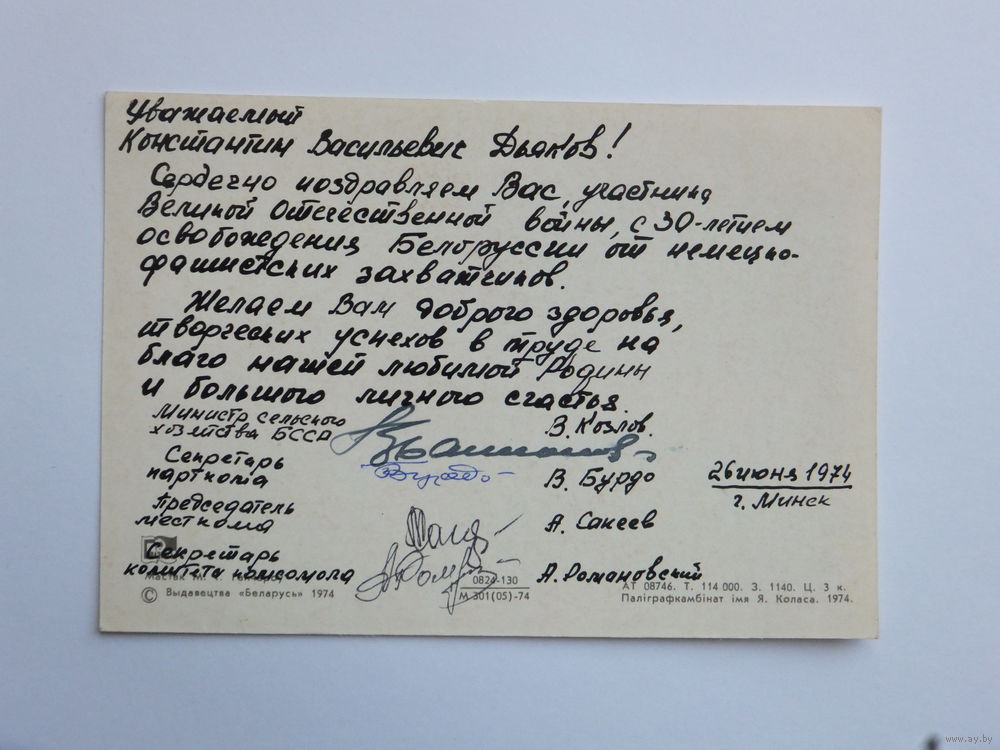 Уважаемый
Константин Васильевич Дьяков!
Сердечно поздравляем Вас, участника
Великой Отечественной войны, с 30-летием
освобождения Белоруссии от немецко-
фашистских захватчиков.
Желаем Вам доброго здоровья,
творческих успехов в труде на
благо нашей любимой Родины
и большого личного счастья.
Министр сельского
хозяйства БССР
В. Козлов.
Секретарь
парткома
В. Бурдо
26 июня 1974
г. Минск
Председатель
месткома
А. Сакеев
Секретарь
комитета комсомола
А. Романовский
Мастак М.
© Выдавецтва «Беларусь» 1974
0824-130
М 301(05)-74
АТ 08746. Т. 114 000. З. 1140. Ц. 3 к.
Паліграфкамбінат імя Я. Коласа. 1974.
www.ay.by